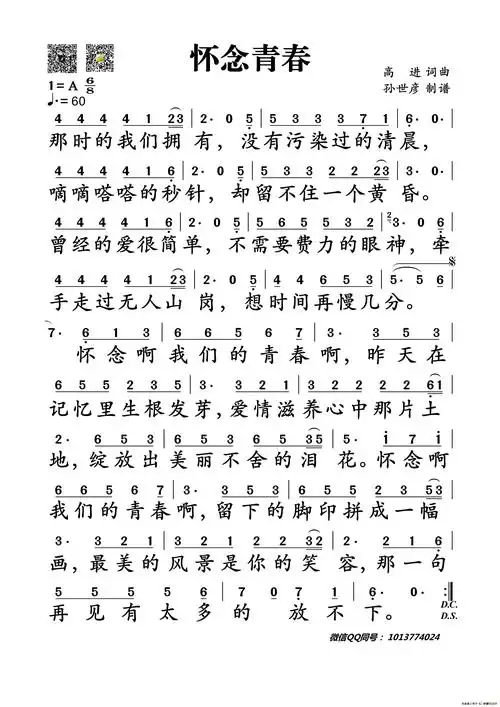 怀念青春
1=A 6/8
高 进 词曲
♩.=60
孙世彦 制谱
4 4 4 4 1 23 | 2· 0 5 | 5 3 3 3 7 1 | 6· 0· |
那时的我们拥 有,没有污染过的清晨,
4 4 4 4 1 6 | 2· 0 5 | 5 3 3 2 2 23 | 3· 0· |
嘀嘀嗒嗒的秒针,却留不住一个黄 昏。
4 4 4 4 1 6 | 2· 0 5 | 5 6 5 5 3 2 | 3· 0 6 |
曾经的爱很简单,不需要费力的眼神,牵
4 4 4 4 1 23 | 2· 0 5 | 4 4 6 5 3 5 | 5· 5 6 |
手走过无人山 岗,想时间再慢几分。
7· 6 1 3 | 6 5 6 5 6 7 | 3· 3 5 3 |
怀念啊我们的青春啊,昨天在
6 5 5 2 5 2 | 3· 3 2 1 | 3 2 1 2 2 61 |
记忆里生根发芽,爱情滋养心中那片土
2· 6 5 3 | 6 5 3 6 5 35 | 5· 1 7 1 |
地,绽放出美丽不舍的泪 花。怀念啊
6 5 6 5 6 7 | 3· 3 5 3 | 6 5 5 2 3 53 |
我们的青春啊,留下的脚印拼成一幅
3· 3 2 1 | 3 2 1 3 2 12 | 2· 2 1 6 |
画,最美的风景是你的笑 容,那一句
5 5 5 5 6 | 7 0 7 1 | 6· 6· | 6· 0· :|
再见有太多的 放不下。
D.C.
D.S.
微信QQ同号: 1013774024